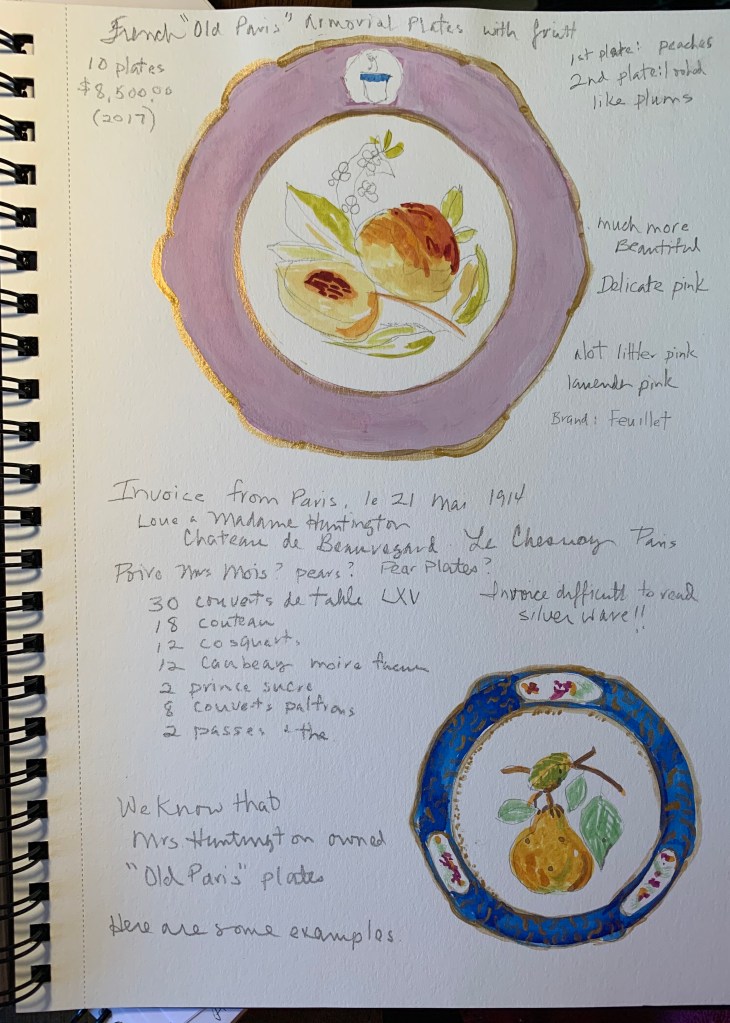 French "Old Paris" Armorial Plates with fruit
10 plates
$8,500.00
(2017)
1st plate: peaches
2nd plate: looked
like plums
much more
Beautiful
Delicate pink
Not litter pink
lavender pink
Brand: Feuillet
Invoice from Paris, le 21 Mai 1914
Loue a Madame Huntington
Chateau de Beauregard Le Chesnay Paris
Poire Mrs Mois? pears? Pear Plates?
30 couverts de table LXV
Invoice difficult to read
silver ware!!
18 couteau
12
12 moire
2 prince sucre
8 couverts
2 passes a the
We Know that
Mrs Huntington owned
"Old Paris" plates
Here are some examples.